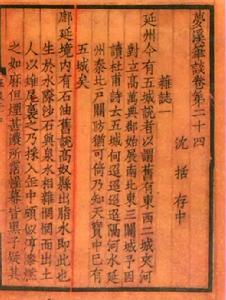 夢溪筆談卷第二十四
沈括存中
雜誌一
延州今有五城說者以謂舊有東西二城夾河
對立高萬興典郡始展南北東三關城予因
讀杜甫詩云五城何迢迢迢迢隔河水延
州秦北戶關防猶可倚乃知天寶中已有
五城矣
鄜延境內有石油舊說高奴縣出脂水即此也
生於水際沙石與泉水相雜惘惘而出土
人以雉尾裛之乃採入缶中頗似淳漆燃
之如麻但煙甚濃所沾幄幕皆黑予疑其